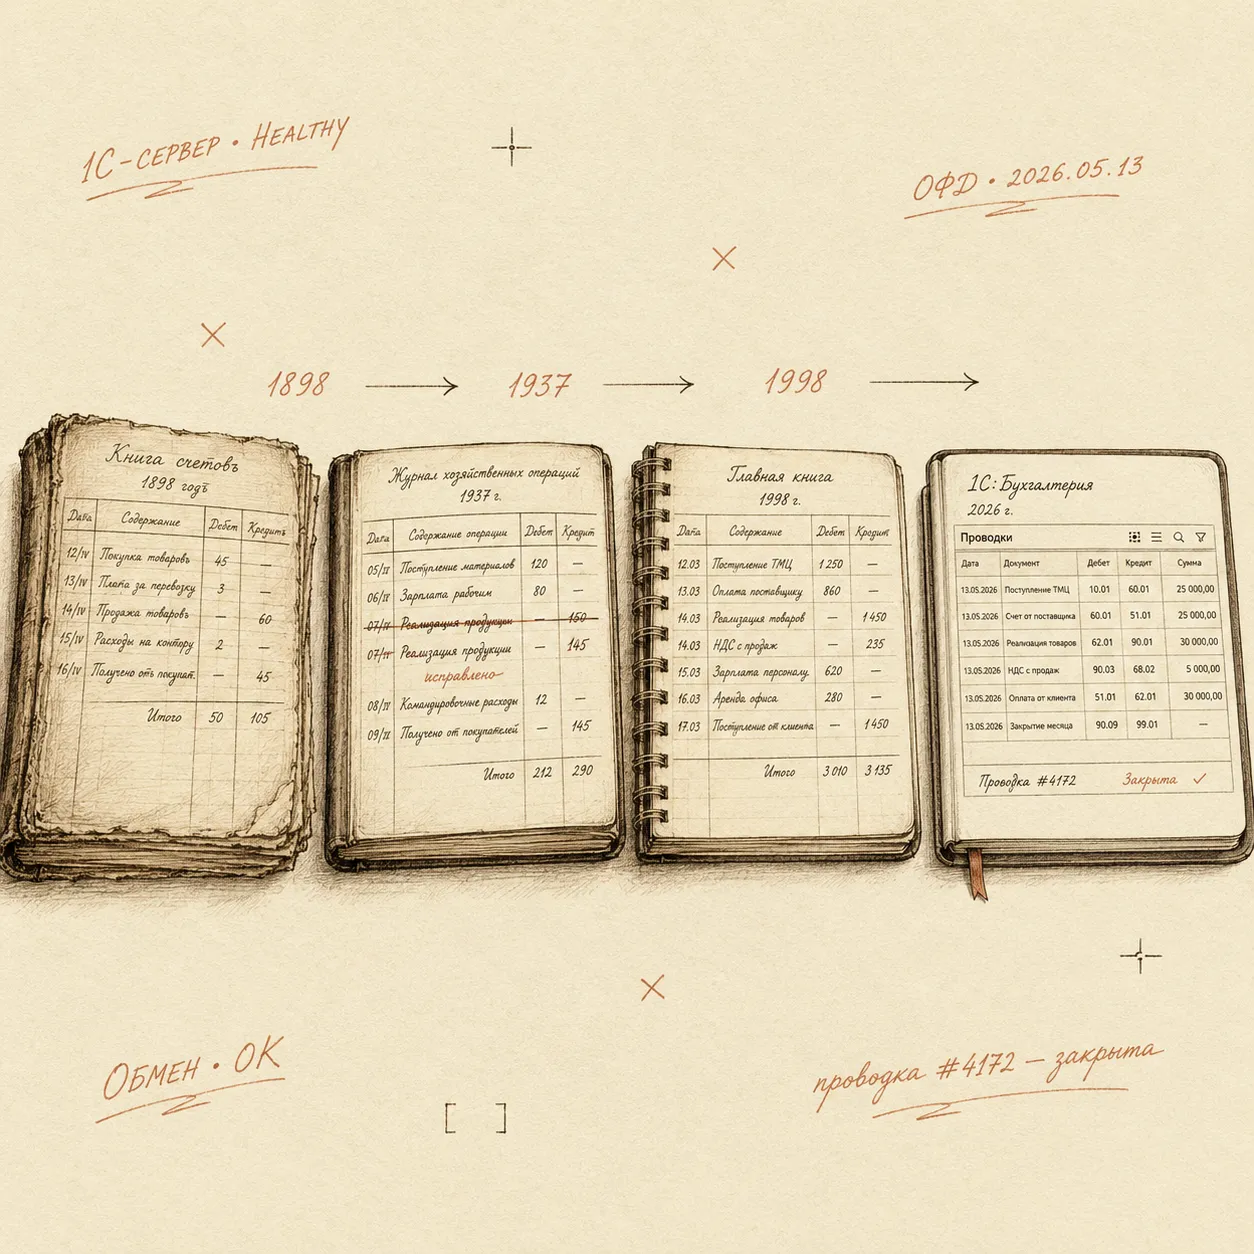 1С-СЕРВЕР • HEALTHY
ОФД • 2026.05.13
1898
1937
1998
Книга счетовъ
1898 годъ
Дата Содержание Дебет Кредитъ
12/IV Покупка товаровъ 45 —
13/IV Плата за перевозку 3 —
14/IV Продажа товаровъ — 60
15/IV Расходы на контору 2 —
16/IV Получено отъ покупат. — 45
Итого 50 105
Журнал хозяйственных операций
1937 г.
Дата Содержание операции Дебет Кредит
05/II Поступление материалов 120 —
06/II Зарплата рабочим 80 —
07/II Реализация продукции — 150
07/II Реализация продукции — 145
исправлено
08/II Командировочные расходы 12 —
09/II Получено от покупателей — 145
Итого 212 290
Главная книга
1998 г.
Дата Содержание Дебет Кредит
12.03 Поступление ТМЦ 1 250 —
13.03 Оплата поставщику 860 —
14.03 Реализация товаров — 1 450
14.03 НДС с продаж — 235
15.03 Зарплата персоналу 620 —
16.03 Аренда офиса 280 —
17.03 Поступление от клиента — 1 450
Итого 3 010 3 135
1С: Бухгалтерия
2026 г.
Проводки
Дата Документ Дебет Кредит Сумма
13.05.2026 Поступление ТМЦ 10.01 60.01 25 000,00
13.05.2026 Счет от поставщика 60.01 51.01 25 000,00
13.05.2026 Реализация товаров 62.01 90.01 30 000,00
13.05.2026 НДС с продаж 90.03 68.02 5 000,00
13.05.2026 Оплата от клиента 51.01 62.01 30 000,00
13.05.2026 Закрытие месяца 90.09 99.01 —
Проводка #4172 Закрыта ✓
ОБМЕН • ОК
проводка #4172 — закрыта